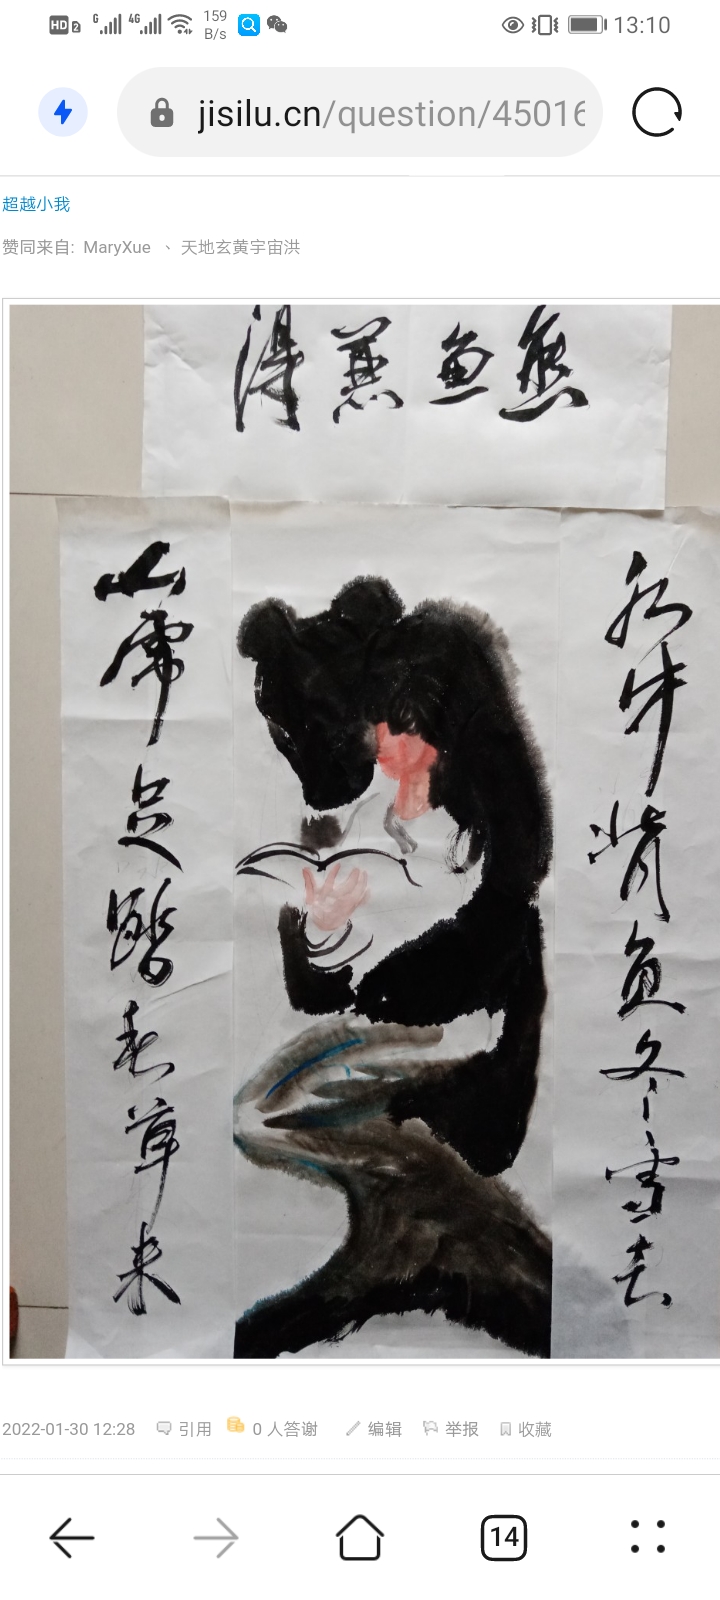 HD 2 G 4G 159 B/s 13:10
jisilu.cn/question/45016
超越小我
赞同来自: MaryXue 、 天地玄黄宇宙洪
熊鱼兼得
水牛背负冬雪去
山虎足踏春草来
2022-01-30 12:28 引用 0 人答谢 编辑 举报 收藏
14